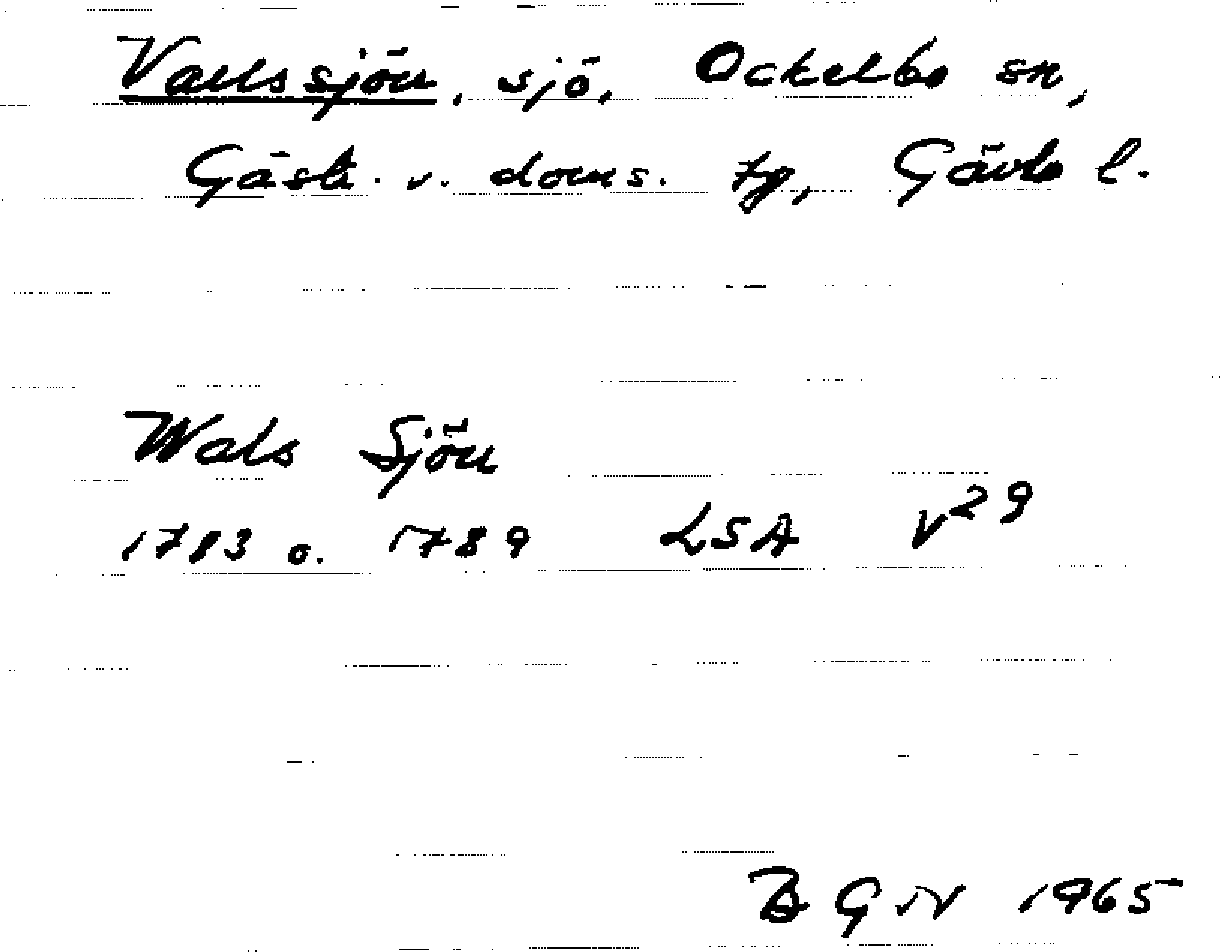 Vallssjön, sjö, Ockelbo sn,
Gästr. v. doms. tg, Gävle l.
Wals Sjön
1783 o. 1789 LSA V29
BGN 1965